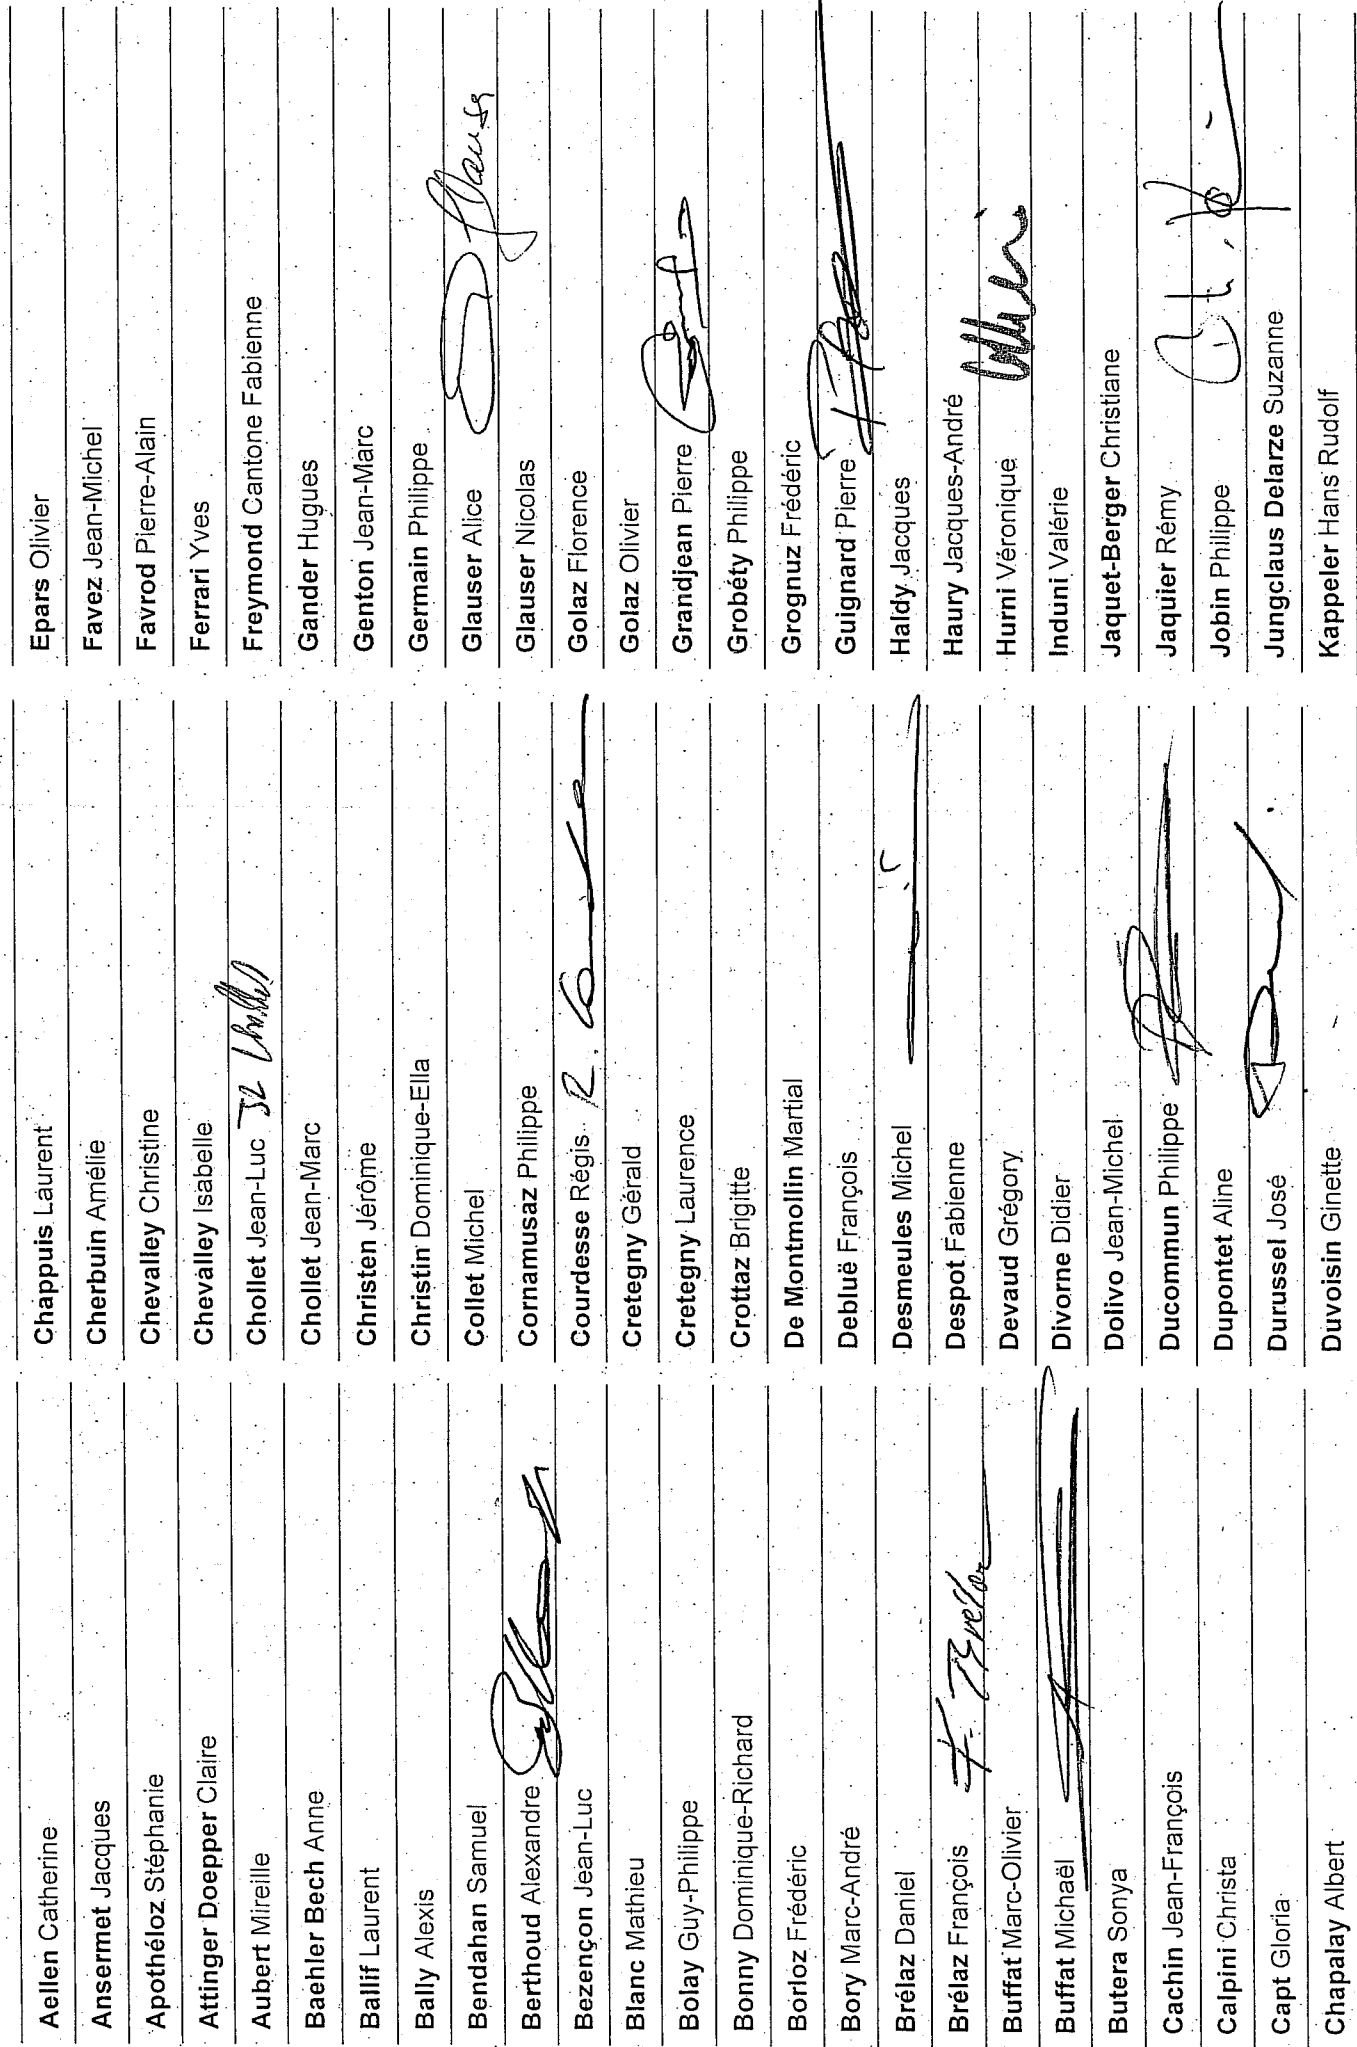 Aellen Catherine
Ansermet Jacques
Apothéloz Stéphanie
Attinger Doepper Claire
Aubert Mireille
Baehler Bech Anne
Ballif Laurent
Bally Alexis
Bendahan Samuel
Berthoud Alexandre
Bezençon Jean-Luc
Blanc Mathieu
Bolay Guy-Philippe
Bonny Dominique-Richard
Borloz Frédéric
Bory Marc-André
Brélaz Daniel
Brélaz François F. Brélaz
Buffat Marc-Olivier
Buffat Michaël
Butera Sonya
Cachin Jean-François
Calpini Christa
Capt Gloria
Chapalay Albert
Chappuis Laurent
Cherbuin Amélie
Chevalley Christine
Chevalley Isabelle
Chollet Jean-Luc JL Chollet
Chollet Jean-Marc
Christen Jérôme
Christin Dominique-Ella
Collet Michel
Cornamusaz Philippe
Courdesse Régis R.
Cretegny Gérald
Cretegny Laurence
Crottaz Brigitte
De Montmollin Martial
Debluë François
Desmeules Michel
Despot Fabienne
Devaud Grégory
Divorne Didier
Dolivo Jean-Michel
Ducommun Philippe
Dupontet Aline
Durussel José
Duvoisin Ginette
Epars Olivier
Favez Jean-Michel
Favrod Pierre-Alain
Ferrari Yves
Freymond Cantone Fabienne
Gander Hugues
Genton Jean-Marc
Germain Philippe
Glauser Alice
Glauser Nicolas
Golaz Florence
Golaz Olivier
Grandjean Pierre
Grobéty Philippe
Grognuz Frédéric
Guignard Pierre
Haldy Jacques
Haury Jacques-André
Hurni Véronique
Induni Valérie
Jaquet-Berger Christiane
Jaquier Rémy
Jobin Philippe
Jungclaus Delarze Suzanne
Kappeler Hans Rudolf